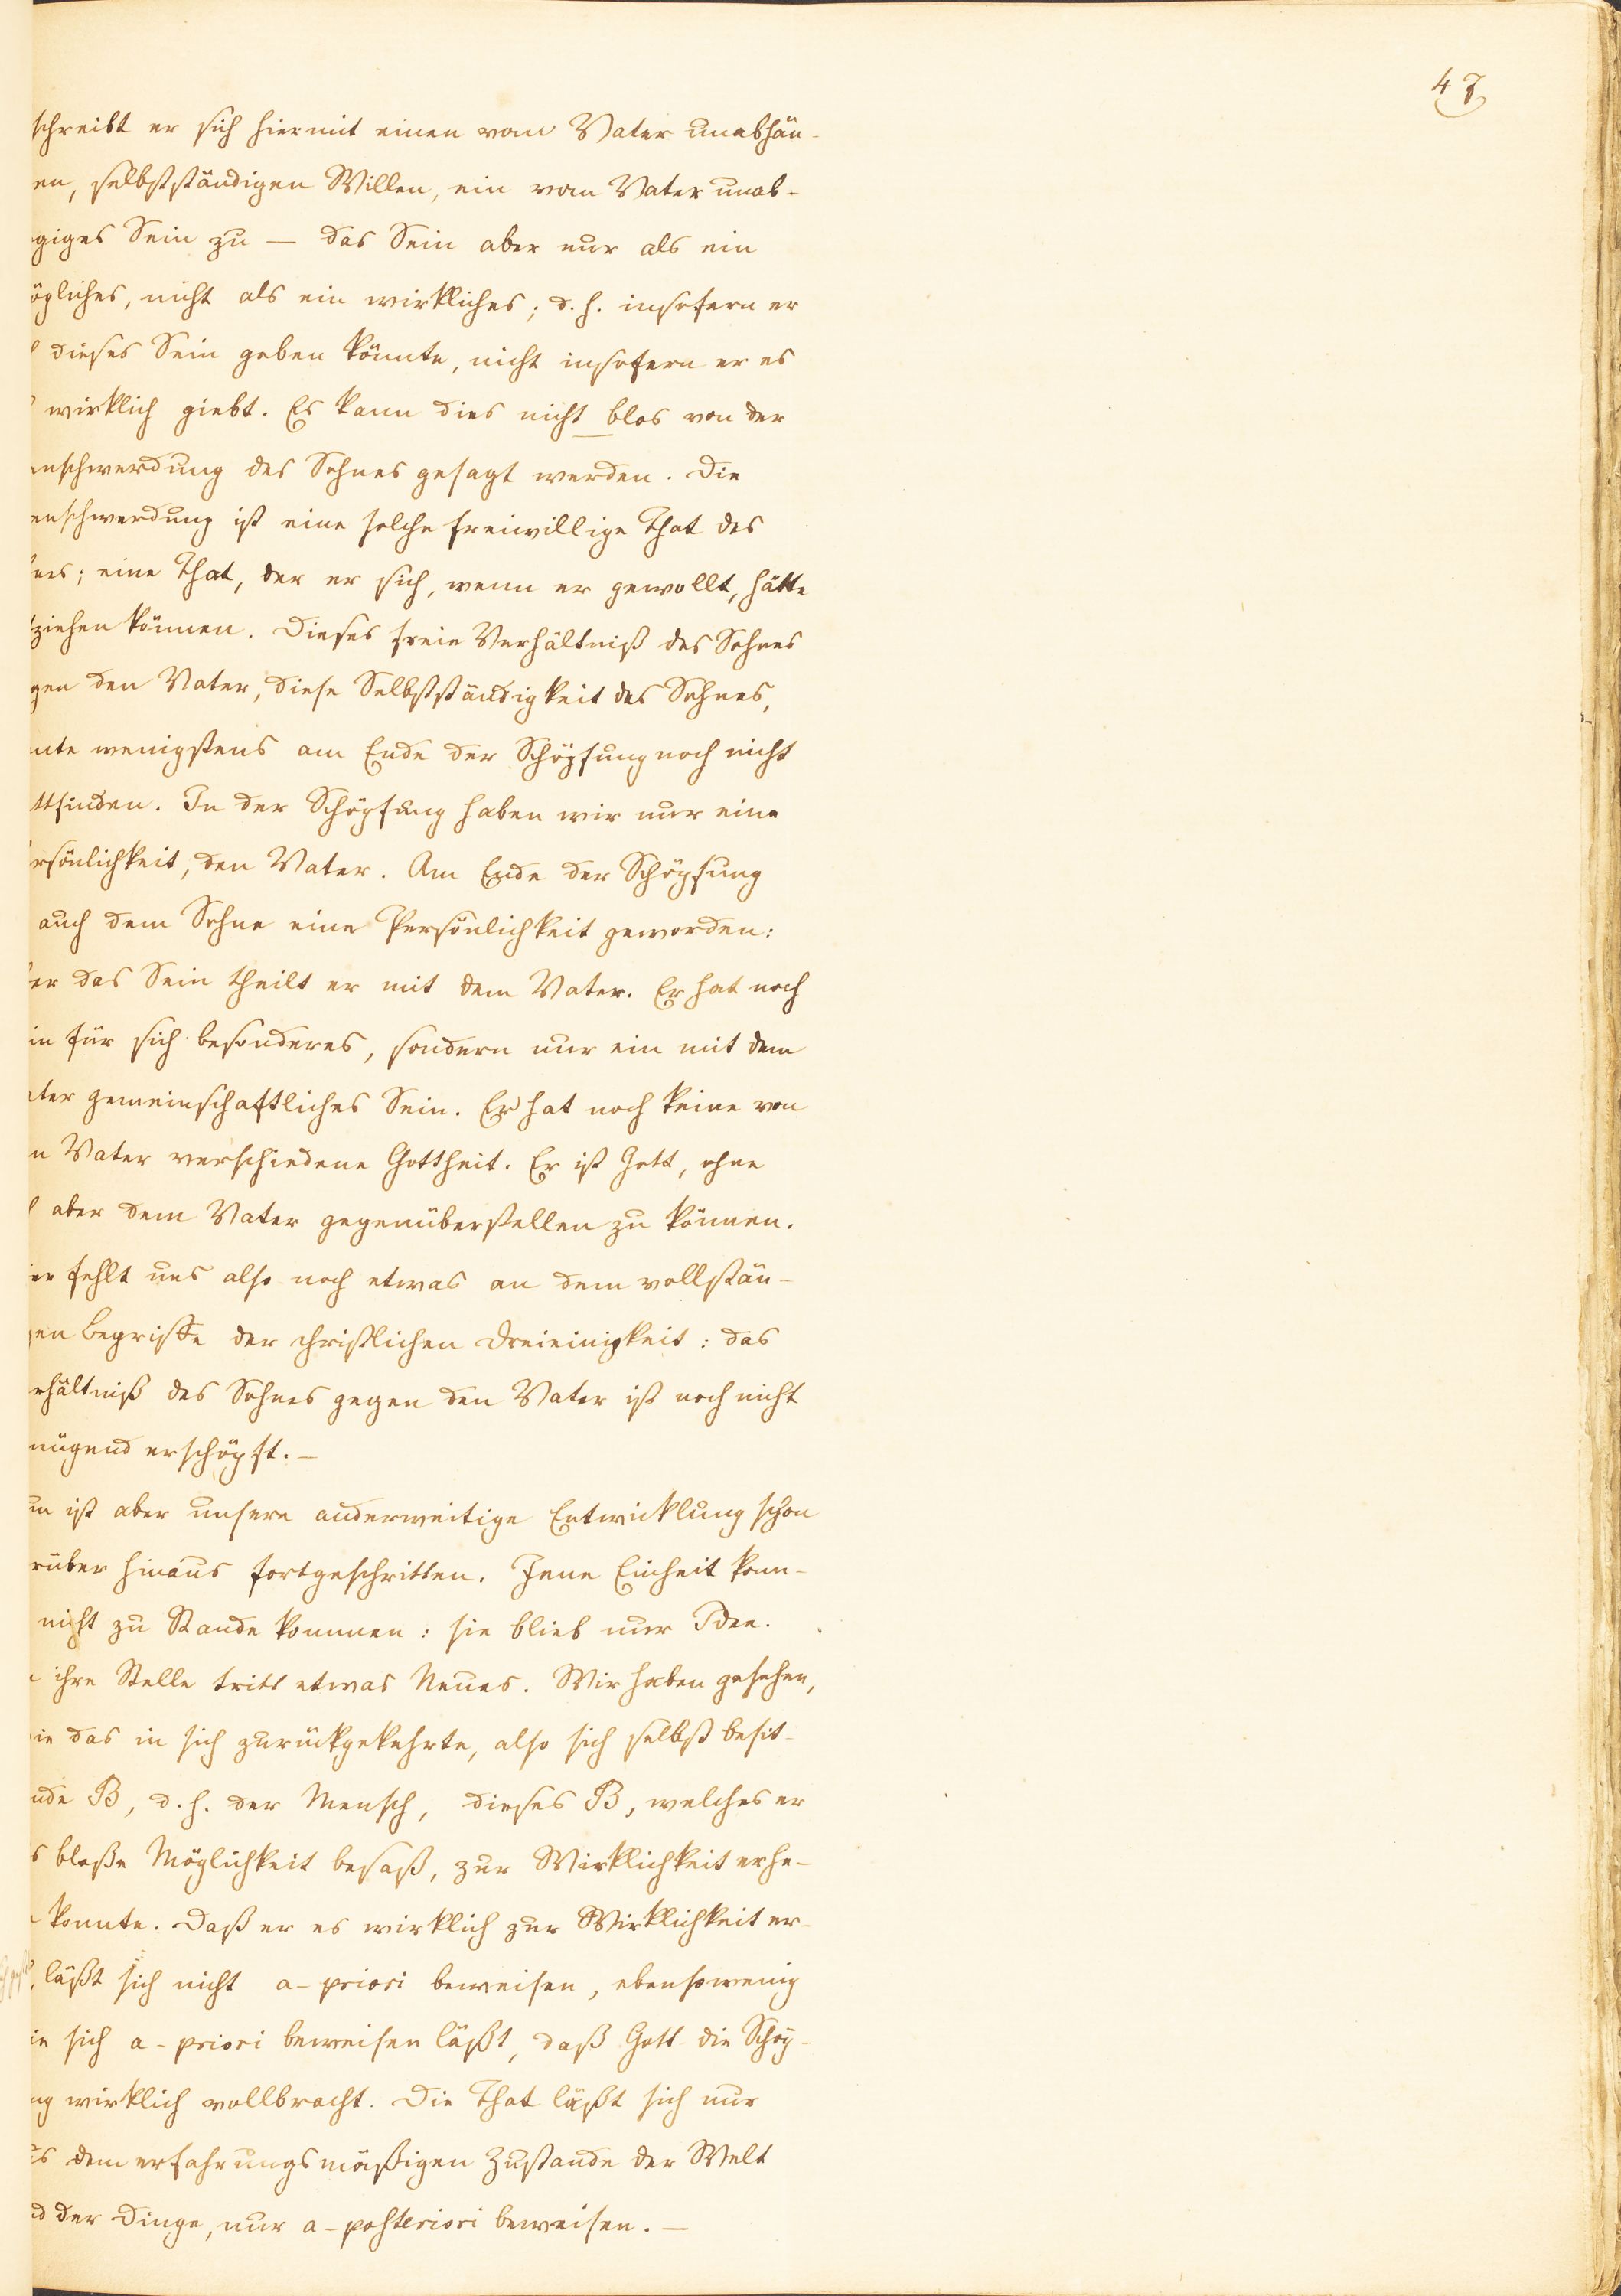 47
schreibt er sich hiermit einen vom Vater unabhän-
en, selbstständigen Willen, ein vom Vater unab-
giges Sein zu — das Sein aber nur als ein
ögliches, nicht als ein wirkliches; d. h. insofern er
dieses Sein geben könnte, nicht insofern er es
wirklich giebt. Es kann dies nicht blos von der
nschwerdung des Sohnes gesagt werden. Die
enschwerdung ist eine solche freiwillige That des
nes; eine That, der er sich, wenn er gewollt, hätte
tziehen können. Dieses freie Verhältniß des Sohnes
gen den Vater, diese Selbstständigkeit des Sohnes,
nte wenigstens am Ende der Schöpfung noch nicht
ttfinden. In der Schöpfung haben wir nur eine
rsönlichkeit, den Vater. Am Ende der Schöpfung
auch dem Sohne eine Persönlichkeit geworden:
er das Sein theilt er mit dem Vater. Er hat noch
in für sich besonderes, sondern nur ein mit dem
ter gemeinschaftliches Sein. Er hat noch keine von
n Vater verschiedene Gottheit. Er ist Gott, ohne
aber dem Vater gegenüberstellen zu können.
er fehlt uns also noch etwas an dem vollstän-
gen Begriffe der christlichen Dreieinigkeit: das
rhältniß des Sohnes gegen den Vater ist noch nicht
nügend erschöpft. —
un ist aber unsere anderweitige Entwicklung schon
rüber hinaus fortgeschritten. Jene Einheit konn-
nicht zu Stande kommen: sie blieb nur Idee.
ihre Stelle tritt etwas Neues. Wir haben gesehen,
ie das in sich zurückgekehrte, also sich selbst besit-
nde B, d. h. der Mensch, dieses B, welches er
s bloße Möglichkeit besaß, zur Wirklichkeit erhe-
konnte. Daß er es wirklich zur Wirklichkeit er-
, läßt sich nicht a-priori beweisen, ebensowenig
ie sich a-priori beweisen läßt, daß Gott die Schöp-
ng wirklich vollbracht. Die That läßt sich nur
us dem erfahrungsmäßigen Zustande der Welt
d der Dinge, nur a-posteriori beweisen. —